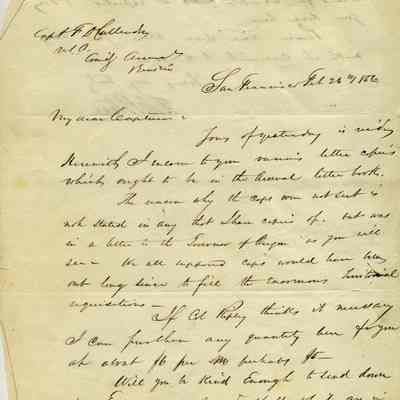 Capt F D Callender
U.S.O.
Comdg Arsenal
Benicia
San Francisco Feb 26th 186
My dear Captain:
Yours of yesterday is rec'd by
Herewith I enclose to you various letter copies
which ought to be in the Arsenal letter book.
The reason why the caps were not sent is
not stated in any that I have copies of. but was
in a letter to the Governor of Oregon as you will
see— We all supposed caps would have been
out long since to fill the enormous Territorial
requisitions—
If Col Ripley thinks it necessary
I can purchase any quantity here for you
at about $6 per M perhaps $5
Will you be kind enough to send down